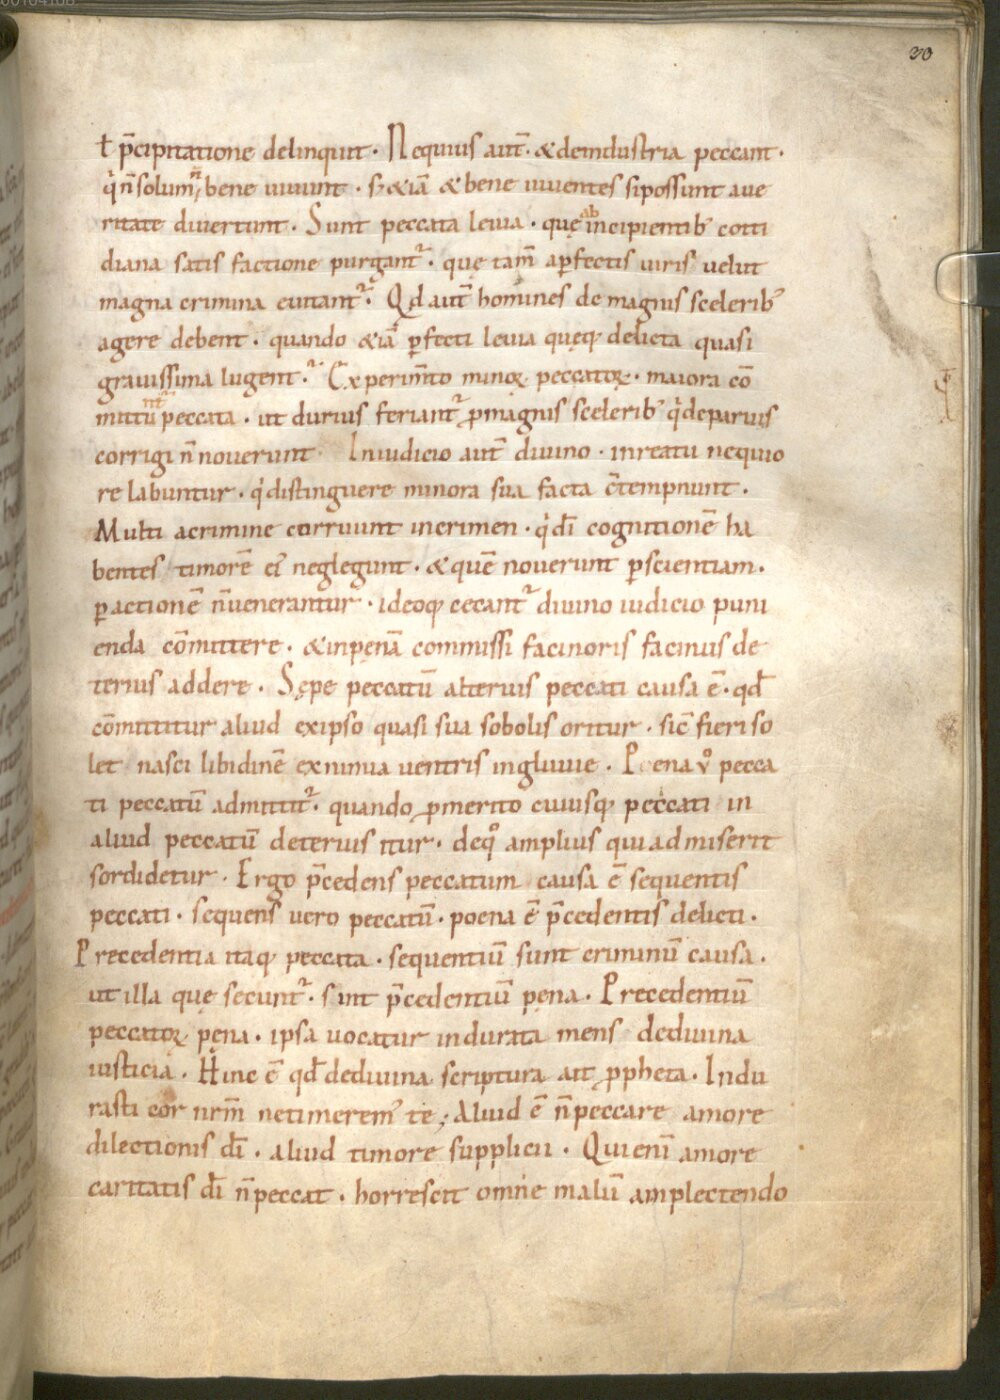 30
ƚ p̄cipitatione delinquit · Nequius aut̄ · & deindustria peccant ·
q̇ n̄ solum n̄ bene uiuunt · s; & iā & bene uiuentes si possunt aue
ritate diuertunt · Sunt peccata leuia · quę ab incipientib' cotti
diana satis factione purgant᷑ · quę tam̄ a ꝑfectis uiris uelut
magna crimina euitant᷑ · Qd aut̄ homines de magnis sclerib'
agere debent · quando & iā ꝑfecti leuia quęq; delicta quasi
grauissima lugent · Experim̄to minoꝝ peccatoꝝ · maiora cō
mittunt᷑ peccata · ut durius feriant᷑ ꝓ magnis scelerib' q̇ de paruis
corrigi n̄ nouerunt · In iudicio aut̄ diuino · in reatu nequio
re labuntur · q̇ distinguere minora sua facta c̄tempnunt ·
Multi acrimine corruunt in crimen · q̇ dī cognitionē ha
bentes timorē ei' neglegunt · & quē nouerunt ꝑ scientiam ·
ꝑ actionē n̄ uenerantur · ideoq; cecant᷑ diuino iudicio puni
enda cōmittere · & in penā commissi facinoris facinus de
terius addere · Sępe peccatū alterius peccati causa ē · qđ
cōmittitur aliud ex ipso quasi sua sobolis oritur · sic̄ fieri so
let nasci libidinē ex nimia uentris ingluuie · Poena v̊ pecca
ti peccatū admittit᷑ · quando ꝓ merito cuiusq; peccati in
aliud peccatū deterius itur · de q̊ amplius qui admiserit
sordidetur · Ergo p̄cedens peccatum causa ē sequentis
peccati · sequens uero peccatū · poena ē p̄cedentis delicti ·
Precedentia itaq; peccata · sequentiū sunt criminū causa ·
ut illa quę secunt᷑ · sint p̄cedentiū pęna · Precedentiū
peccatoꝝ pęna · ipsa uocatur indurata mens de diuina
iusticia · Hinc ē qđ de diuina scriptura ait ꝓpheta · Indu
rasti cor nrm̄ ne timerem' te ; Aliud ē n̄ peccare amore
dilectionis dī · aliud timore supplicii · Qui enī amore
caritatis dī n̄ peccat · horrescit omne malū amplectendo